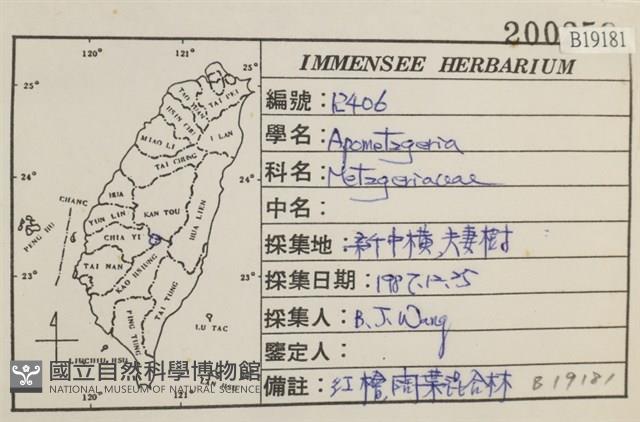 B19181
IMMENSEE HERBARIUM
編號：12406
學名：Apometzgeria
科名：Metzgeriaceae
中名：
採集地：新中橫,夫妻樹
採集日期：1987.12.25
採集人：B. J. Wang
鑒定人：
備註：紅檜,闊葉混合林 B19181
120° 121°
25° 25°
TAI PEI
I LAN
MIAO LI
TAI CHUNG
24° 24°
HUA LIEN
YUN LIN
KAN TOU
CHIA YI
PENG HU
23° 23°
TAI NAN
KAO HSIUNG
TAI TUNG
PING TUNG
LU TAO
120° 121°
國立自然科學博物館
NATIONAL MUSEUM OF NATURAL SCIENCE